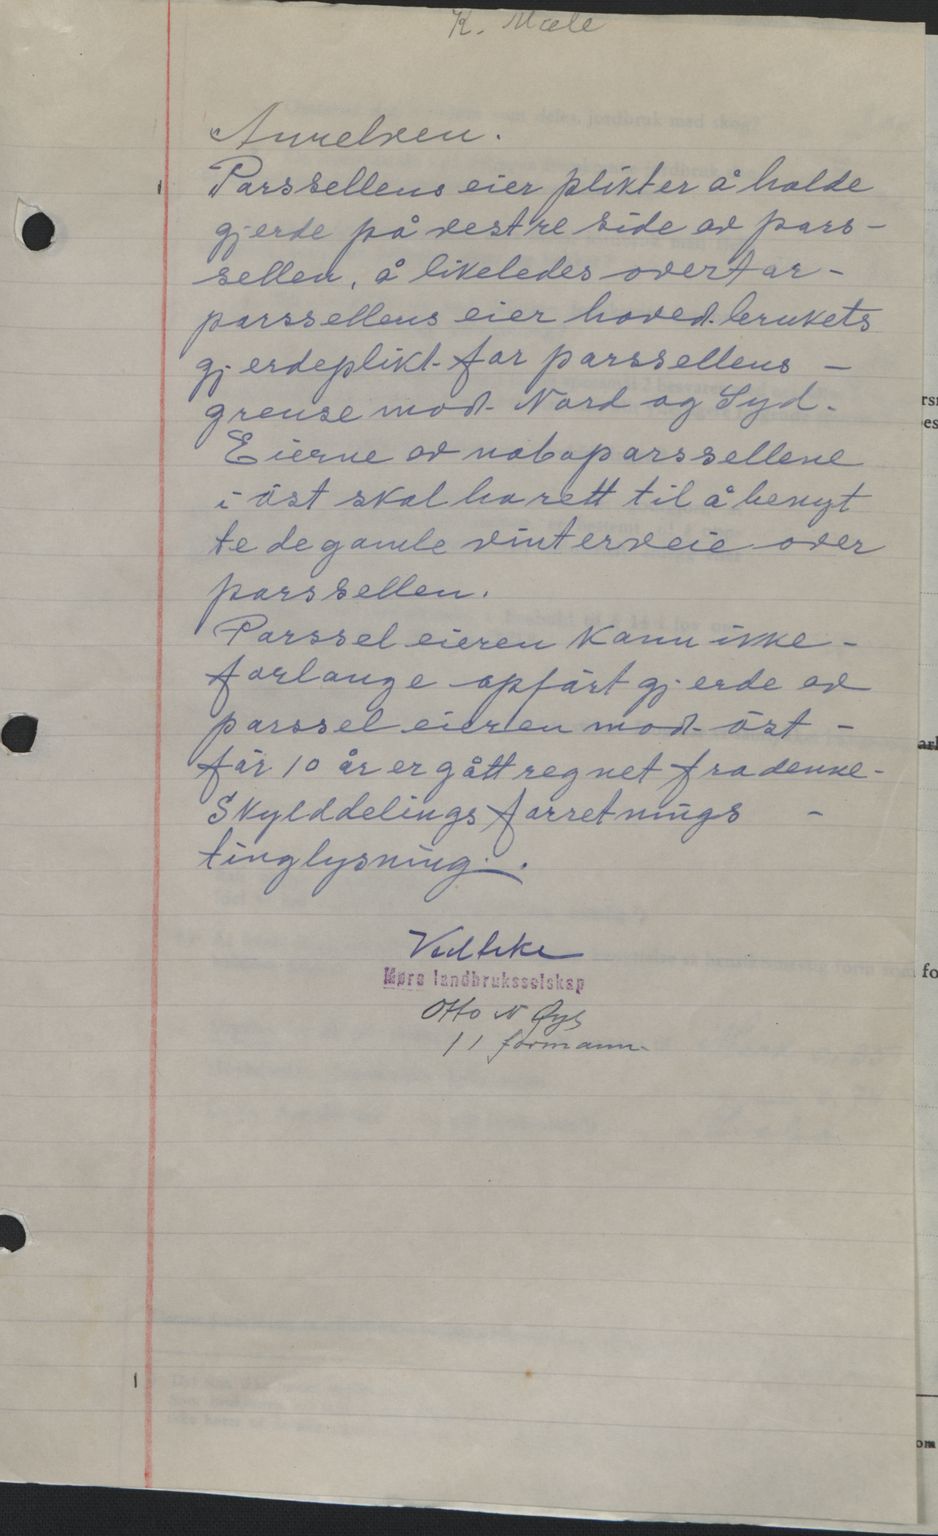 K. Mæle
Anmelsen.
Parssellens eier plikter å holde
gjerde på vestre side av pars-
sellen, å likeledes overtar -
parssellens eier hoved-brukets
gjerdeplikt for parssellens -
grense mod Nord og Syd.
Eierne av naboparssellene
i öst skal ha rett til å benyt
te de gamle vinterveie over
parssellen.
Parssel eieren kann ikke -
forlange opfört gjerde av
parssel eieren mod öst -
för 10 år er gått regnet fra denne-
Skylddelings forretnings -
tinglysning.
Vedteke
Møre landbruksselskap
Otto N Øye
formann